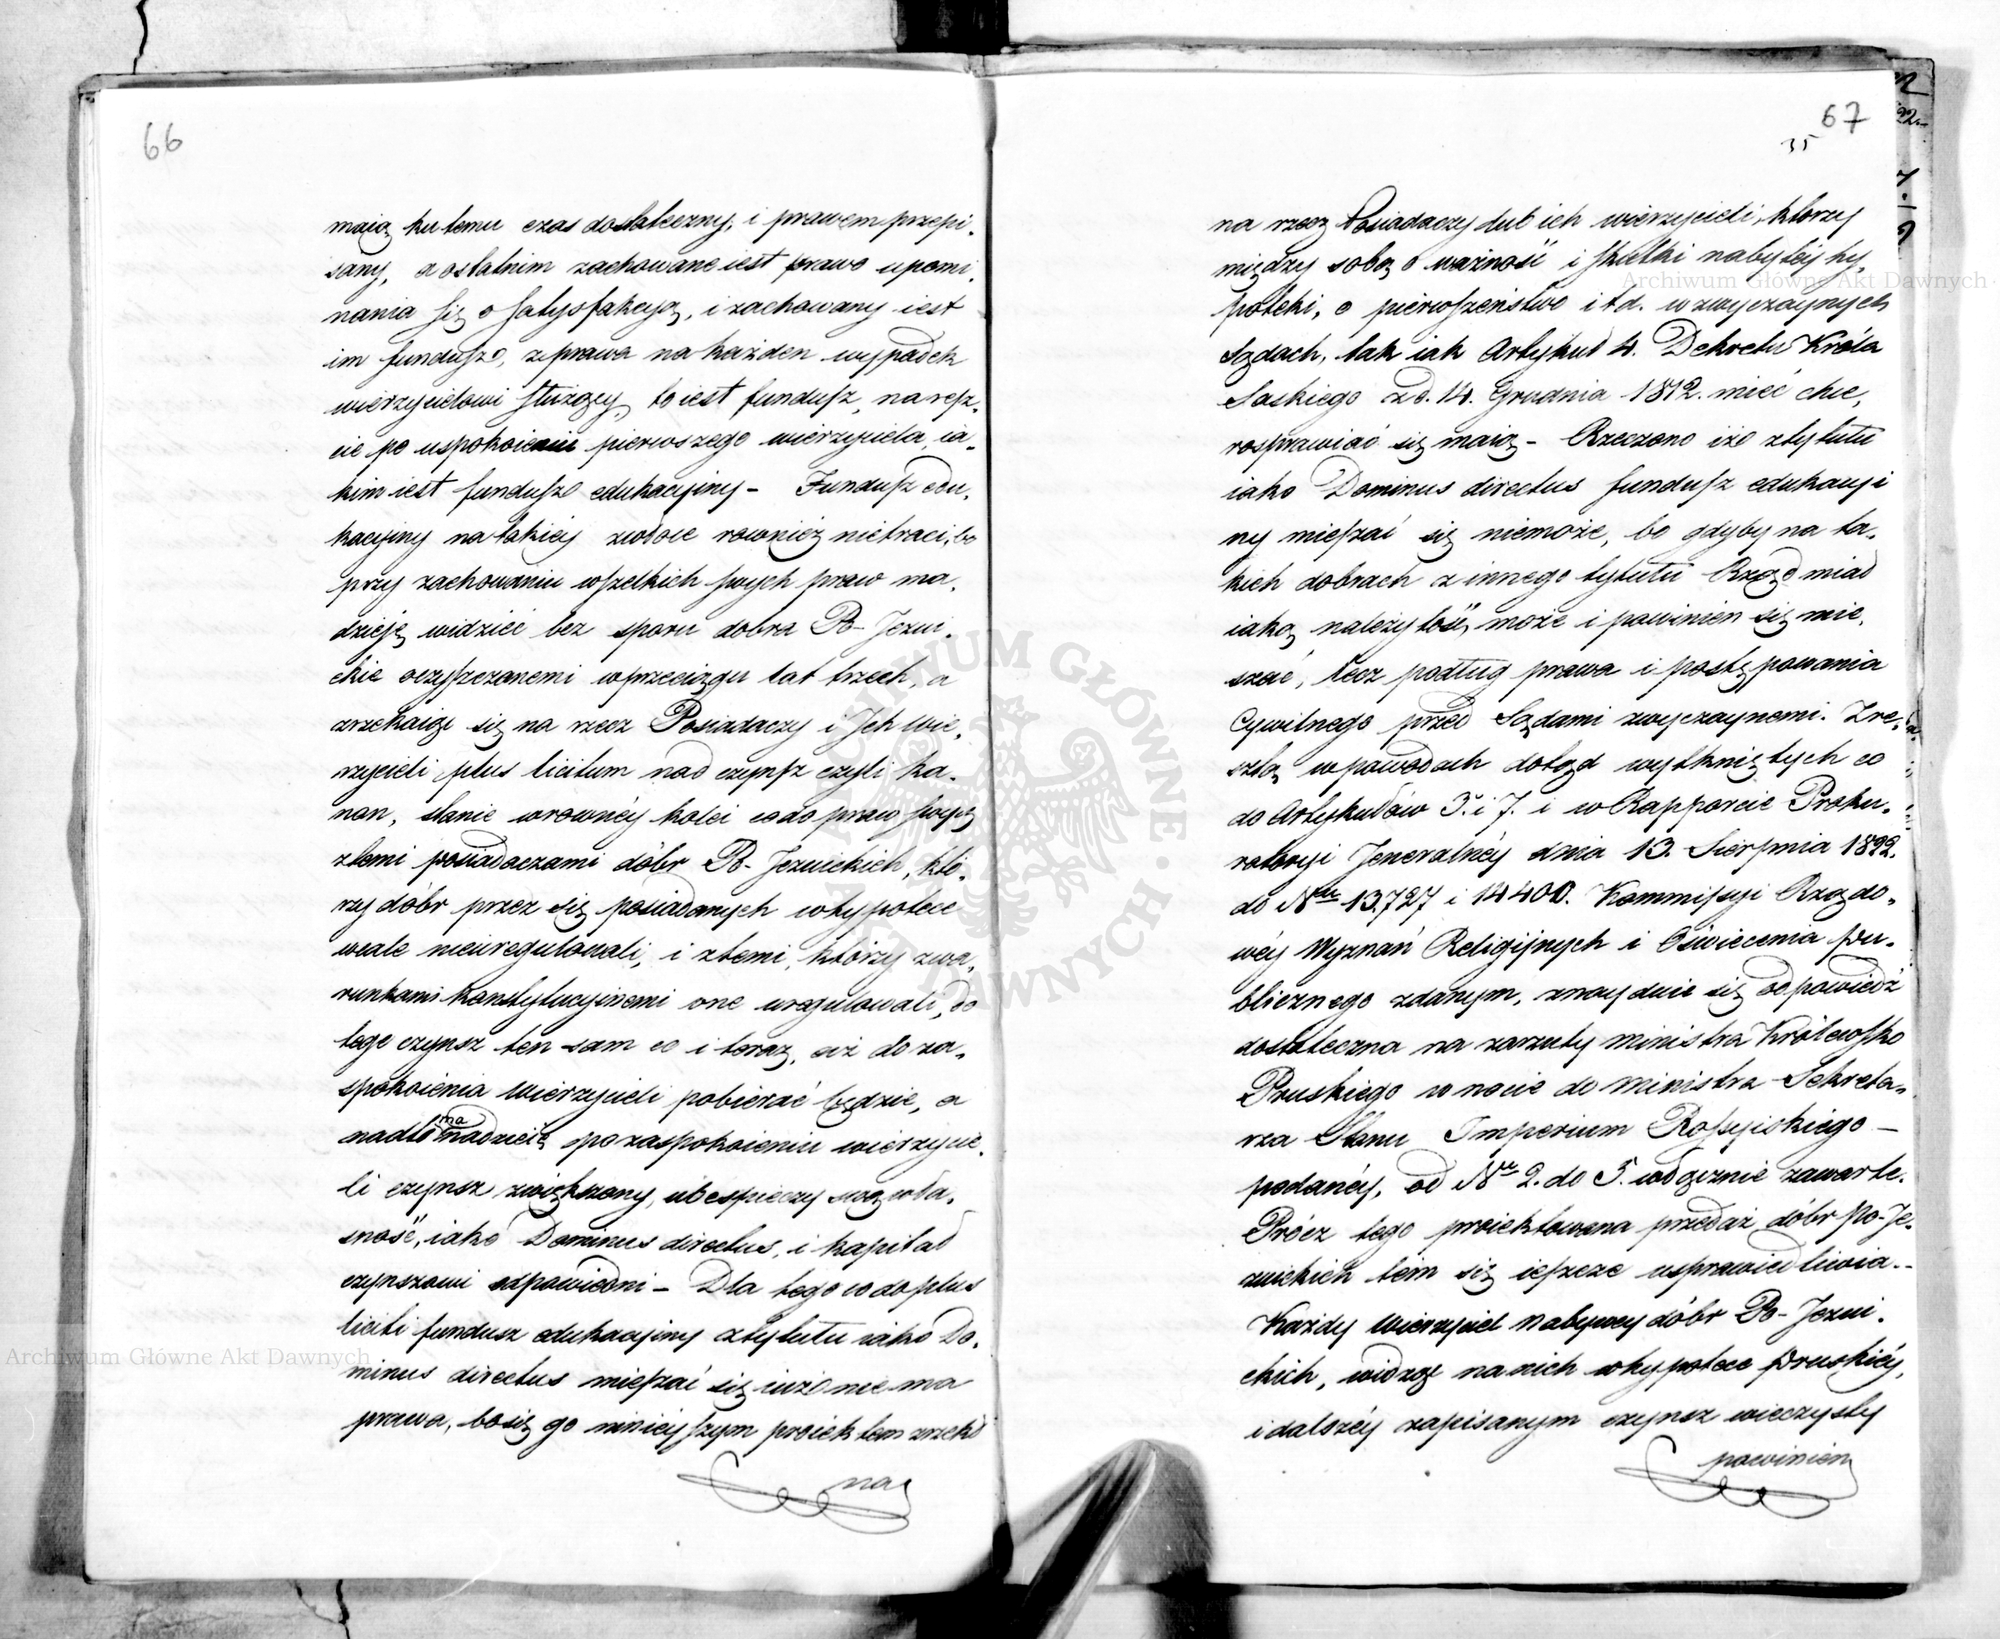 66
maią ku temu czas dostateczny, i prawem przepi-
sany, a ostatnim zachowane iest prawo upomi-
nania się o satysfakcyą, i zachowany iest
im fundusz, z prawa na każden wypadek
wierzycielowi służący, to iest fundusz, na resz-
cie po uspokoieniu pierwszego wierzyciela, ia-
kim iest fundusz edukacyiny - Fundusz edu-
kacyiny na takiéy zwłoce również nietraci, bo
przy zachowaniu wszelkich swych praw ma
dzieię widziéć bez sporu dobra Po-Jezui-
ckie oczyszczanemi w przeciągu lat trzech, a
zrzekaiąc się na rzecz Posiadaczy i Jch wie-
rzycieli plus licitum nad czynsz czyli ka-
non, stanie w równéy kolei co do praw swych
z temi posiadaczami dóbr Po-Jezuickich, któ-
rzy dóbr przez się posiadanych w hypotece
wcale nieuregulowali, i z temi, którzy z wa-
runkami konstytucyinemi one uregulowali, do
tego czynsz ten sam co i teraz, aż do za-
spokoienia wierzycieli pobierać będzie, a
nadto ma nadzieię po zaspokoieniu wierzycie-
li czynsz zwiększony, ubespieczy swą wła-
sność, iako Dominus directus, i kapitał
czynszowi odpowiedni - Dla tego co do plus
liciti fundusz edukacyiny z tytułu iako Do-
minus directus mieszać się iuż nie ma
prawa, bo się go ninieyszym proiektem zrzekł
na
67
35
na rzecz Posiadaczy lub ich wierzycieli, którzy
między sobą o ważność i skutki nabytéy hy-
poteki, o pierwszeństwo i t d. w zwyczaynych
Sądach, tak iak Artykuł 4. Dekretu Króla
Saskiego z d. 14. Grudnia 1812. mieć chce,
rosprawiać się maią - Rzeczono iż z tytułu
iako Dominus directus fundusz edukacyi
ny mieszać się niemoże, bo gdyby na ta-
kich dobrach z innego tytułu Rząd miał
iaką należytość, może i powinien się mie-
szać, lecz podług prawa i postępowania
Cywilnego przed Sądami zwyczaynemi. Zre-
sztą w powodach dotąd wytkniętych co
do Artykułów 3. i 7. i w Rapporcie Proku-
ratoryi Jeneralnéy dnia 13. Sierpnia 1822.
do Nru 13,727 i 14400. Kommissyi Rządo-
wéy Wyznań Religijnych i Oświecenia Pu-
blicznego zdanym, znayduie się odpowiedź
dostateczna na zarzuty ministra Królewsko
Pruskiego w nocie do Ministra Sekreta-
rza Stanu Imperium Rossyiskiego -
podanéy, od Nru 2. do 5. włącznie zawarte.
Prócz tego proiektowana przedaż dóbr Po-Je-
zuickich tém się ieszcze usprawiedliwia. -
Każdy wierzyciel nabywcy dóbr Po-Jezui-
ckich, widząc na nich w hypotece Pruskiéy,
i dalszéy zapisanym czynsz wieczysty
powinien
Archiwum Główne Akt Dawnych
Archiwum Główne Akt Dawnych
ARCHIWUM GŁÓWNE · AKT DAWNYCH ·